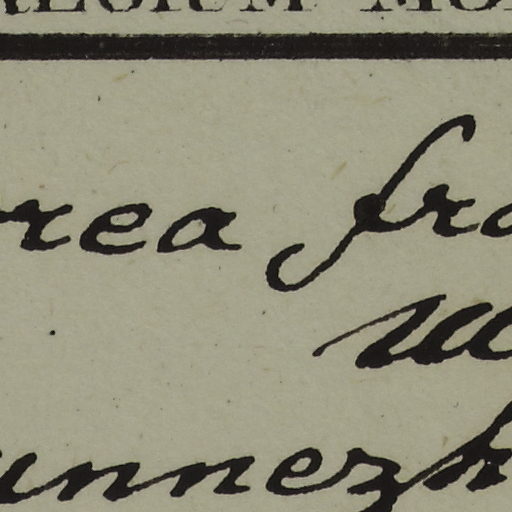 REGIUM MO
rea fra
u
unnezh